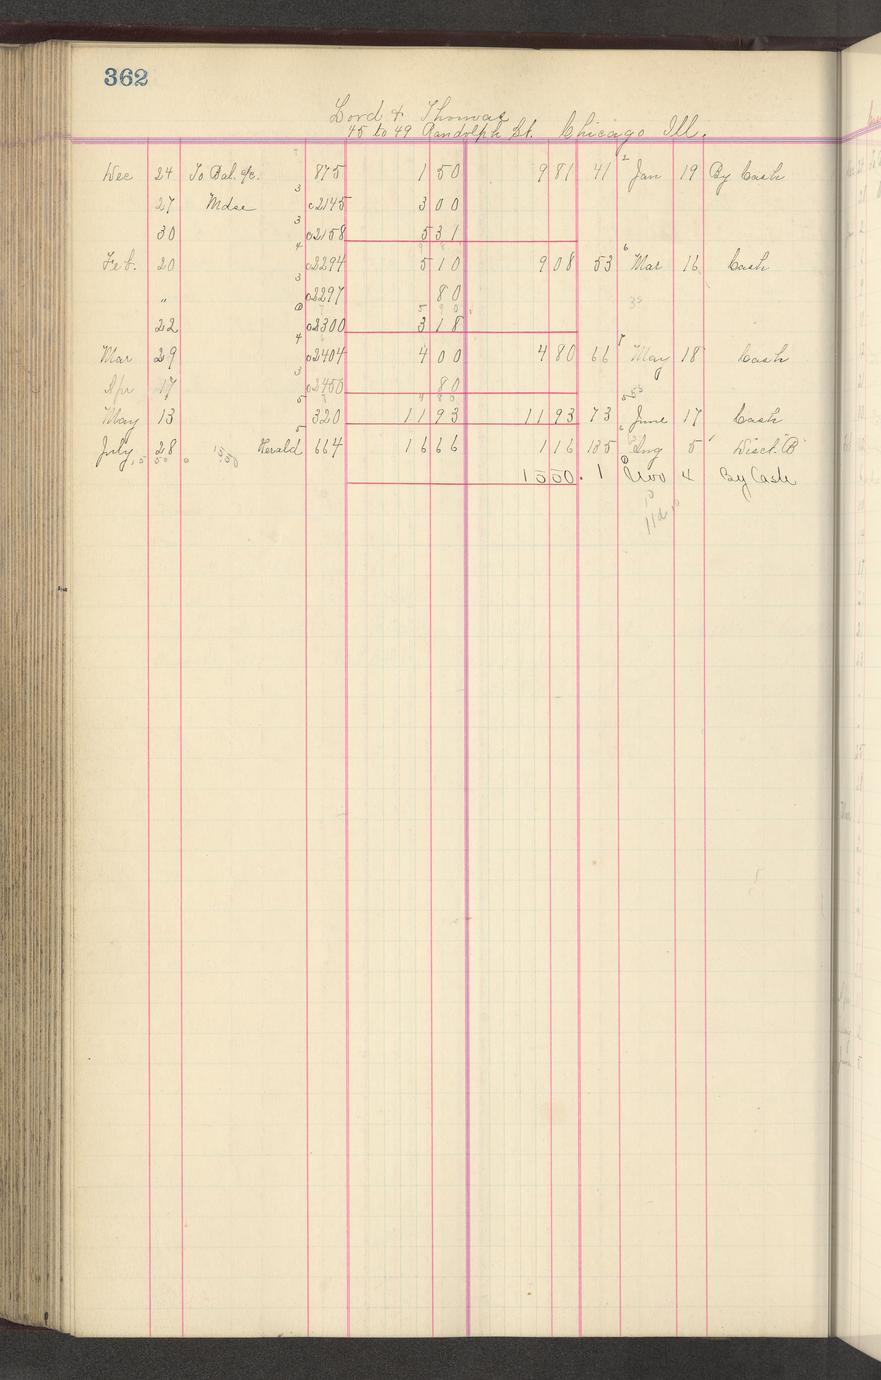 362
Lord & Thomas
45 to 49 Randolph St. Chicago Ill.
Dec 24 To Bal. a/c. 875 1 50 9 81 41 2 Jan 19 By Cash
27 Mdse 3 02145 3 00
30 3 02158 5 31
Feb. 20 4 02294 5 10 9 08 53 6 Mar 16 Cash
" 3 02297 80
22 02300 3 18
Mar 29 4 02404 4 00 4 80 66 May 18 Cash
Apr 17 3 02450 80
May 13 5 320 11 93 11 93 73 June 17 Cash
July 28 Herald 5 664 16 66 1 16 185 Aug 5 Disct. "B"
15 50 . 1 Nov 4 By Cash